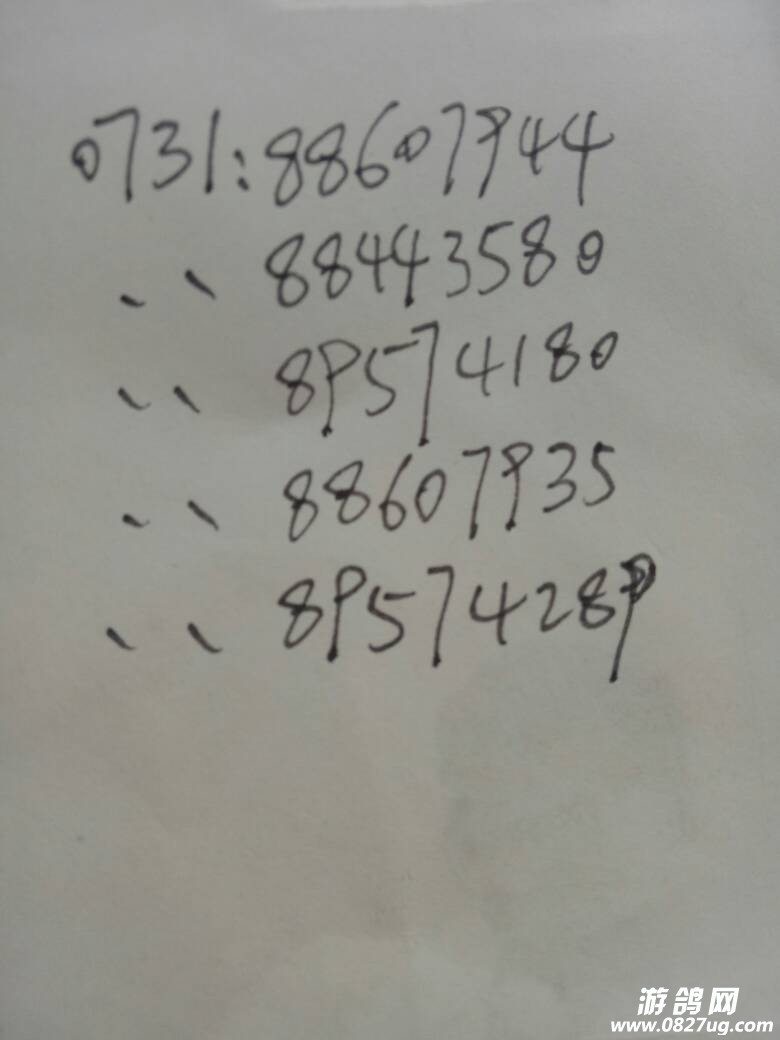 0731:88607944
、、 88443580
、、 89574180
、、 88607935
、、 89574289
游鸽网
www.0827ug.com